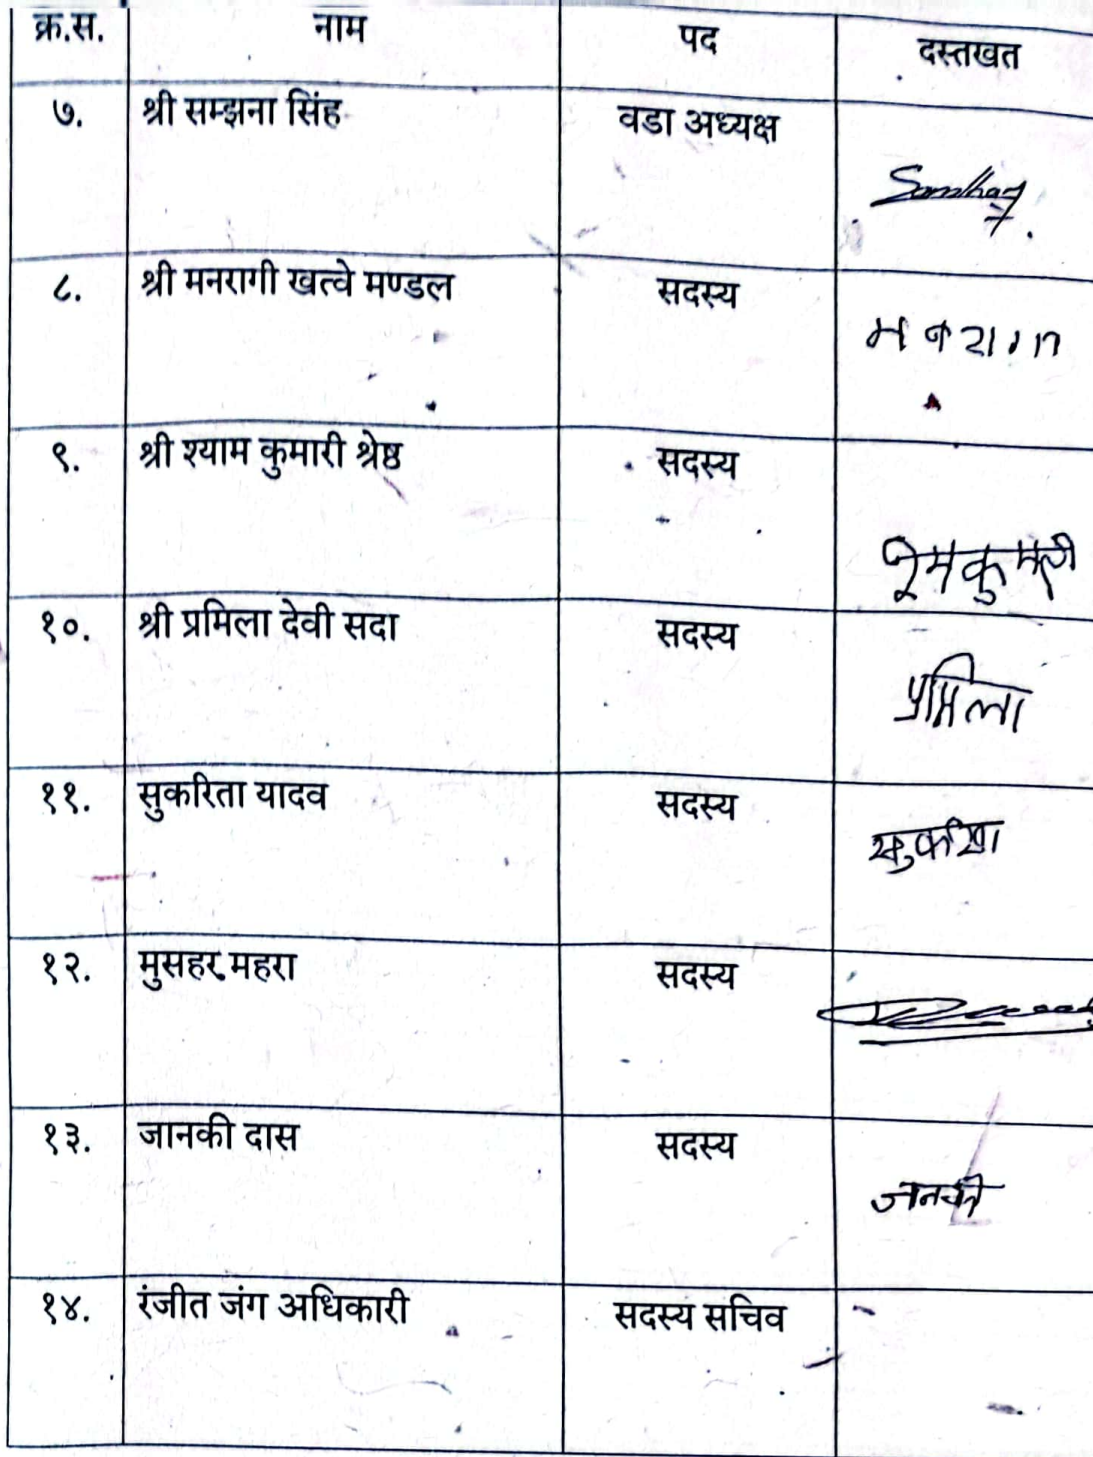 क्र.स. नाम पद दस्तखत
७. श्री सम्झना सिंह वडा अध्यक्ष
८. श्री मनरागी खत्वे मण्डल सदस्य
९. श्री श्याम कुमारी श्रेष्ठ सदस्य
१०. श्री प्रमिला देवी सदा सदस्य
प्रमिला
११. सुकरिता यादव सदस्य
१२. मुसहर महरा सदस्य
१३. जानकी दास सदस्य
जानकी
१४. रंजीत जंग अधिकारी सदस्य सचिव